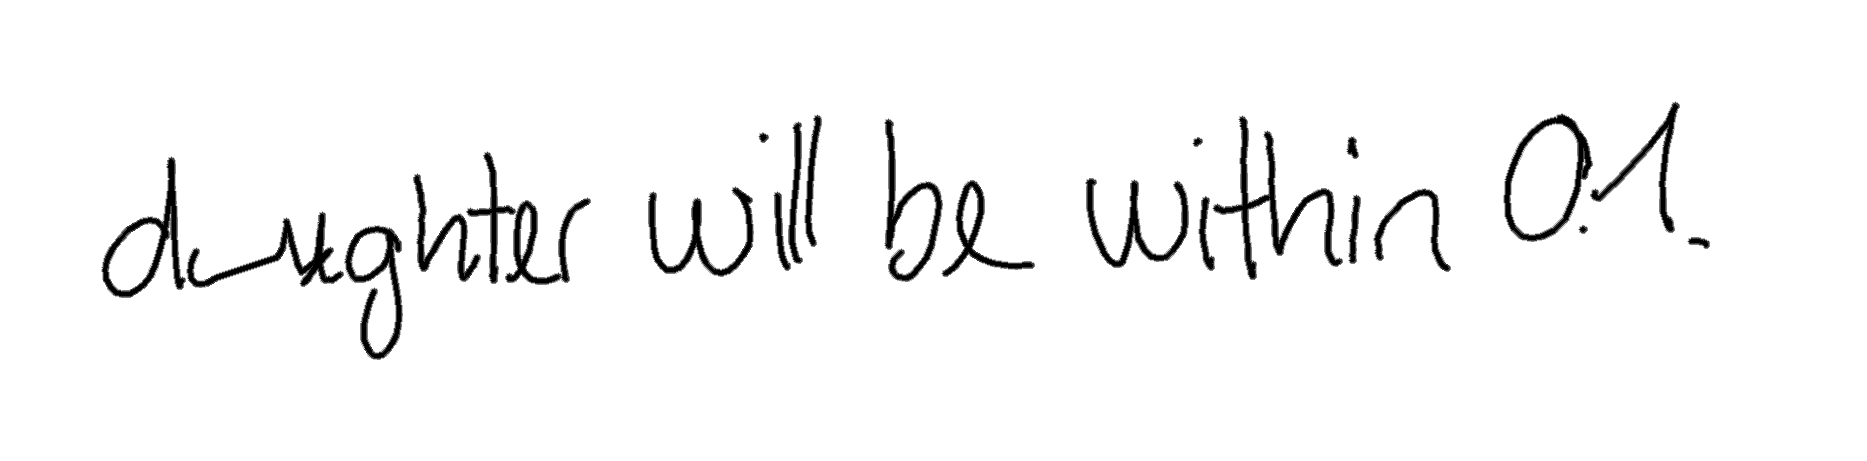 daughter will be within 0.1.